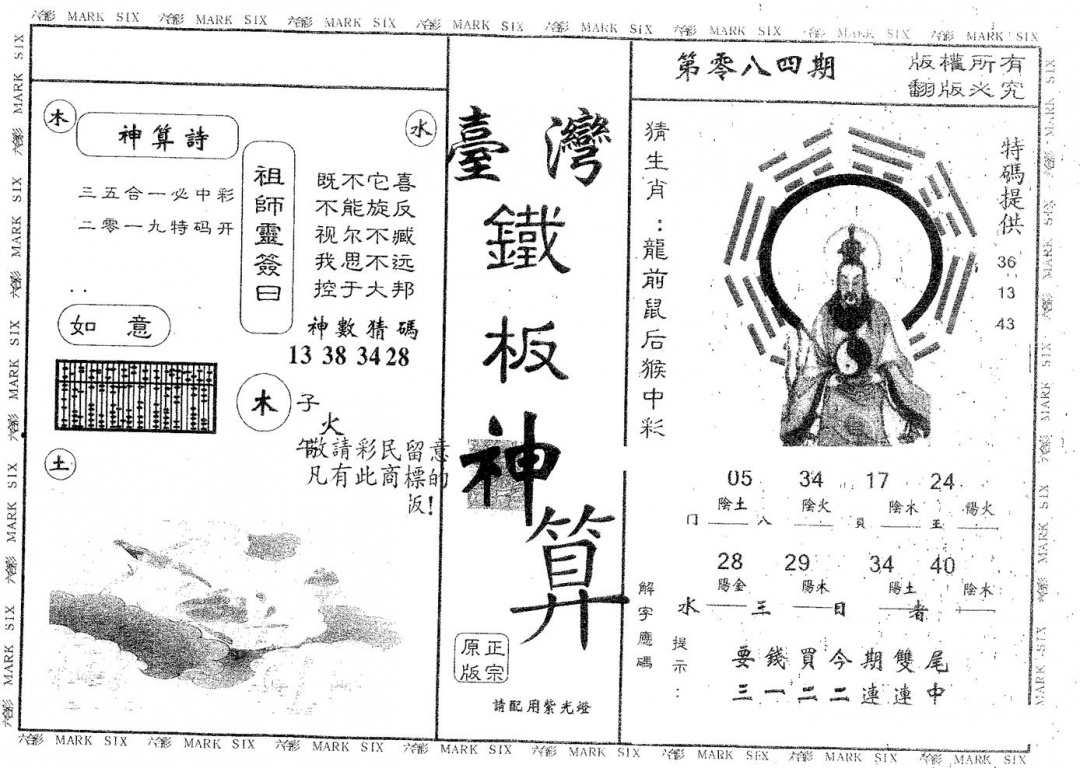 六彩 MARK SIX 六彩 MARK SIX 六彩 MARK SIX 六彩 MARK SIX 六彩 MARK SIX 六彩 MARK SIX 六彩 MARK SIX 六彩 MARK SIX
木
神算詩
水
三五合一必中彩
二零一九特码开
祖師靈簽曰
既不它喜
不能旋反
视尔不臧
我思不远
控于大邦
如意
神數猜碼
13 38 34 28
木
子
火
午
敬請彩民留意
凡有此商標的
版!
土
臺灣
鐵
板
神
算
正宗
原版
請配用紫光燈
第零八四期
版權所有
翻版必究
猜生肖：龍前鼠后猴中彩
特碼提供
36
13
43
05 34 17 24
陰土 陰火 陰木 陽火
门 八 貝 王
28 29 34 40
陽金 陽木 陽土 陰木
水 三 日 者
解字應碼
提示：
要錢買今期雙尾
三一二二連連中
六彩 MARK SIX 六彩 MARK SIX 六彩 MARK SIX 六彩 MARK SIX 六彩 MARK SIX 六彩 MARK SIX 六彩 MARK SIX 六彩 MARK SIX